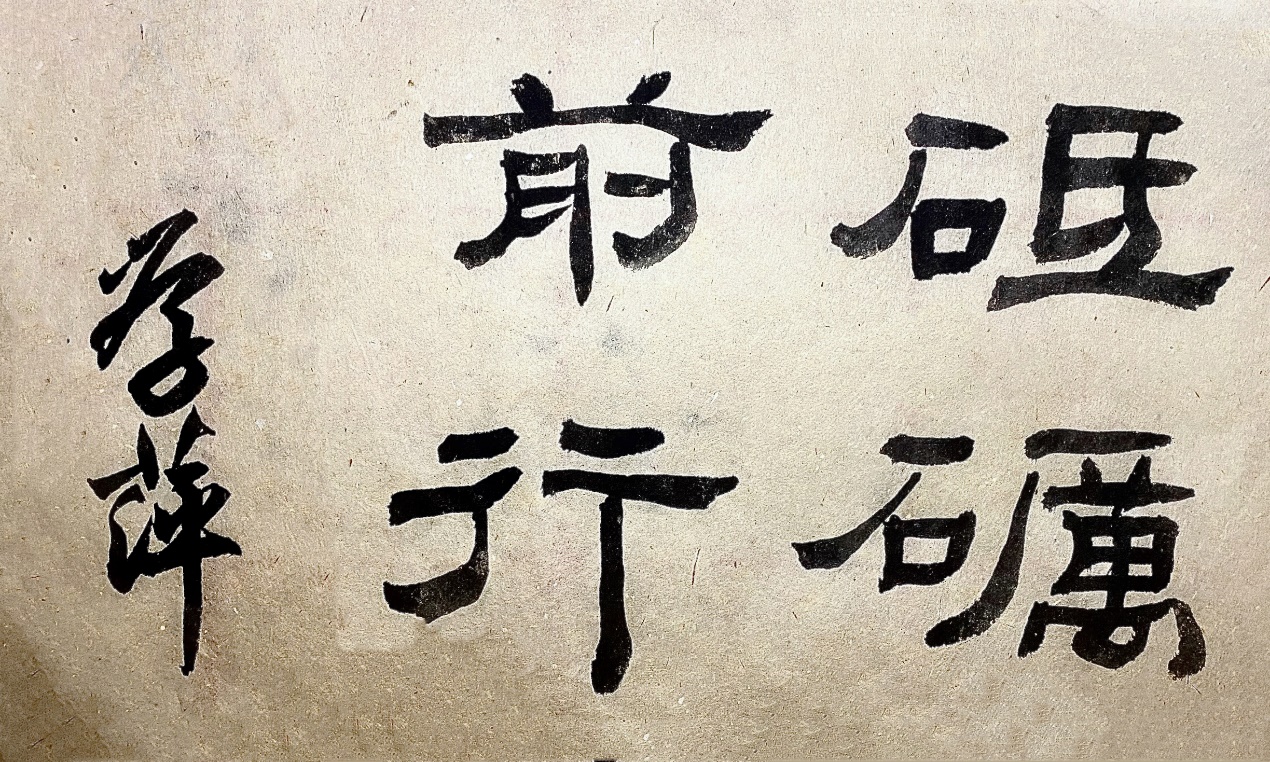 砥礪
前行
學萍